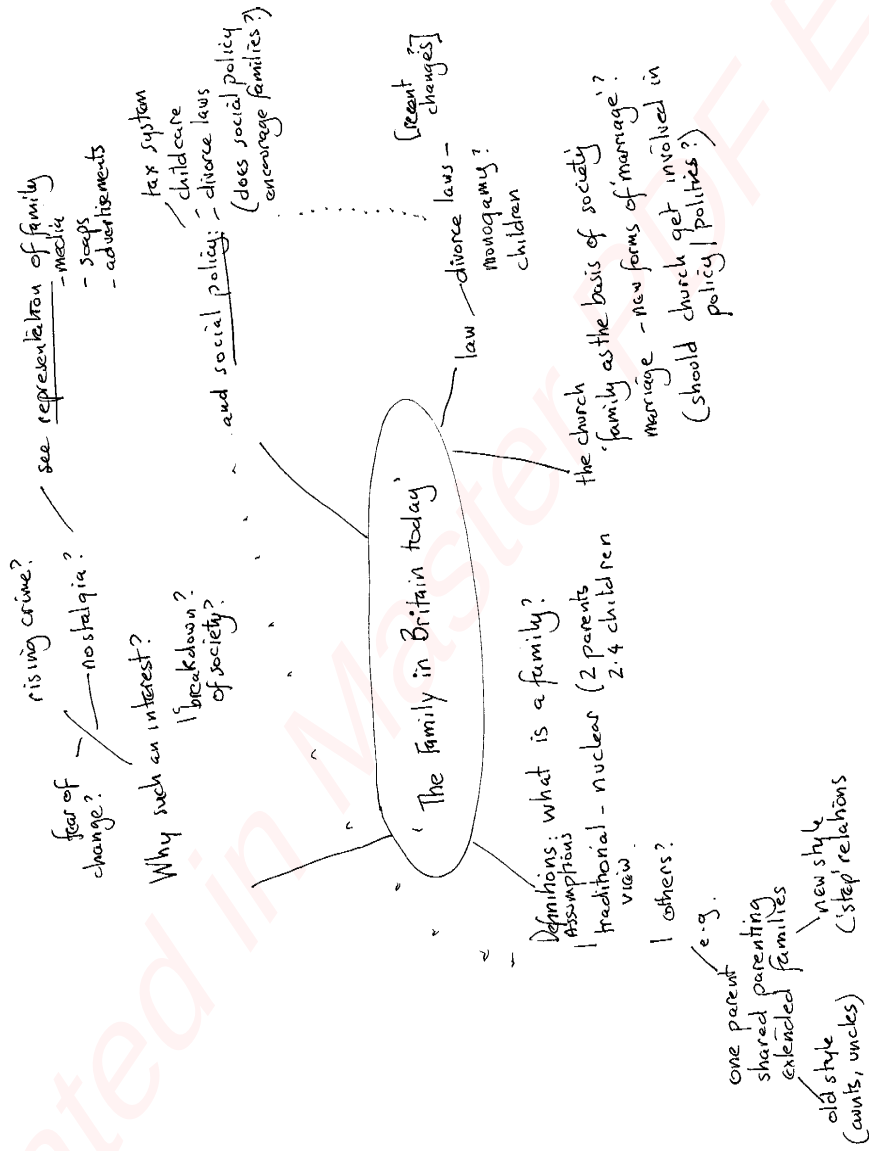 'The Family in Britain today'
Why such an interest?
fear of
change?
rising crime?
nostalgia?
breakdown?
of society?
see representation of family
- media
- soaps
- advertisements
and social policy:
tax system
childcare
- divorce laws
(does social policy
encourage families?)
law
divorce laws -
monogamy?
children
[recent
changes]
the church
'family as the basis of society
marriage - new forms of 'marriage'?
(should church get involved in
policy / politics?)
Definitions: what is a family?
Assumptions
traditional - nuclear (2 parents
view.
2.4 children
others?
e.g.
one parent
shared parenting
extended families
old style
(aunts, uncles)
new style
('step' relations